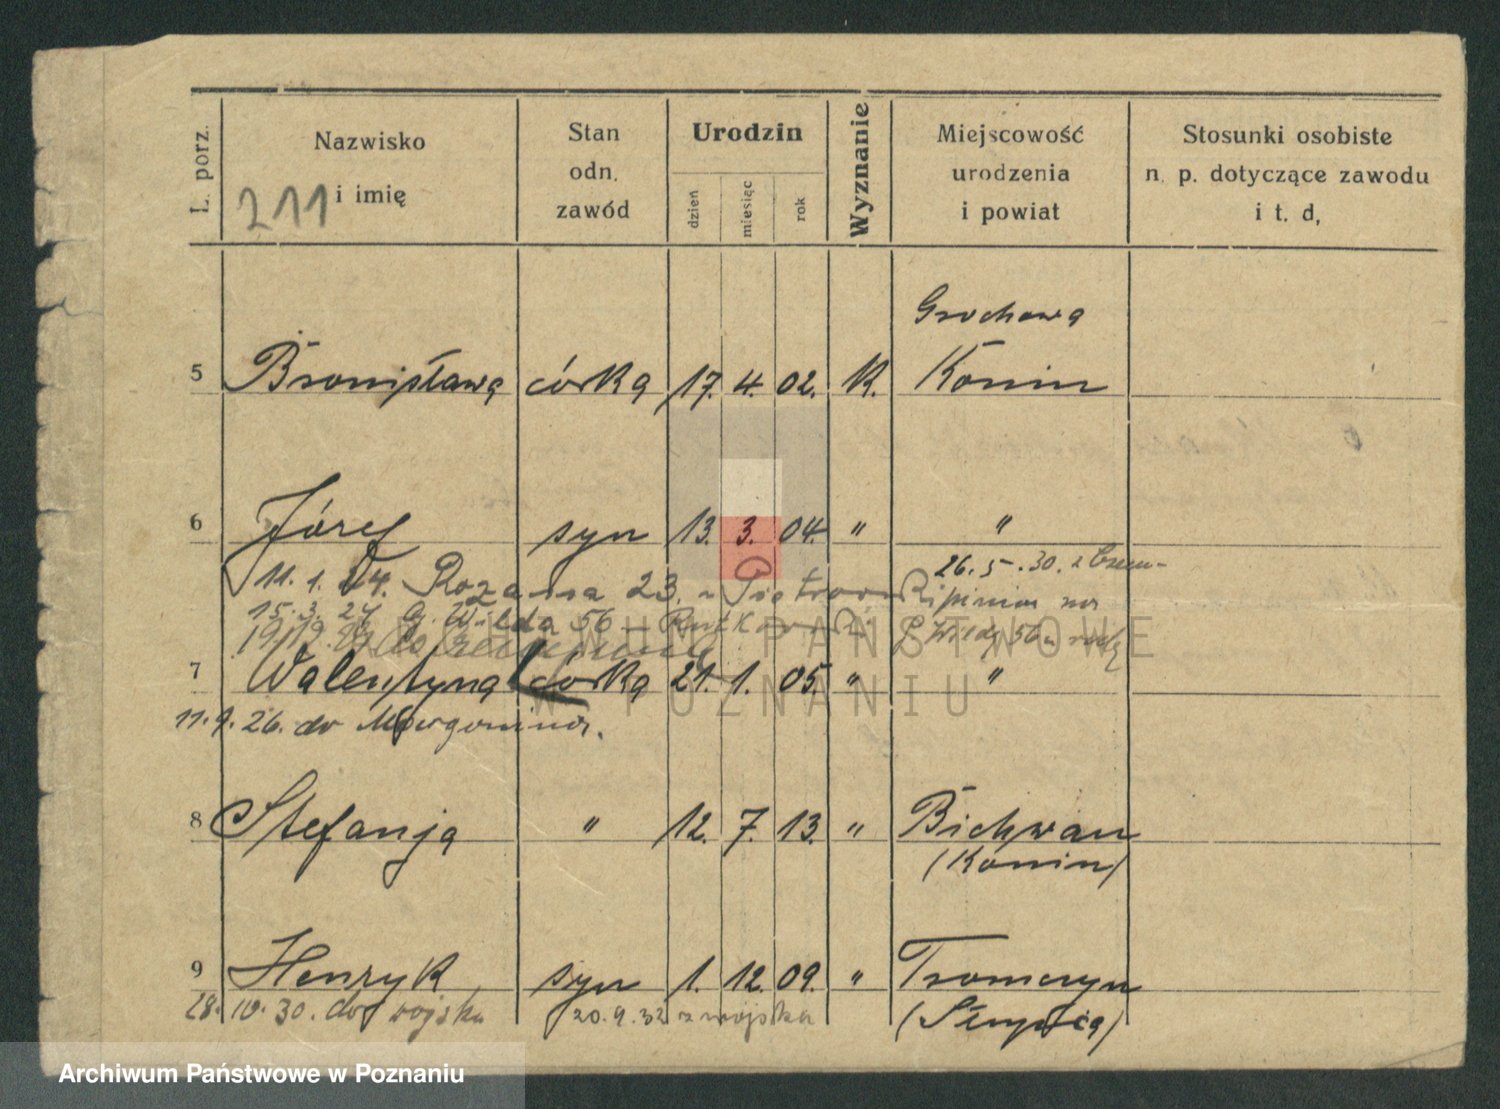 L. porz.
Nazwisko
i imię
211
Stan
odn.
zawód
Urodzin
dzień
miesiąc
rok
Wyznanie
Miejscowość
urodzenia
i powiat
Stosunki osobiste
n. p. dotyczące zawodu
i t. d,
Grochowa
5 Bronisława córka 17. 4. 02. K. Konin
6 Józef syn 13. 3. 04. " "
11. 1. 24. 23.
26. 5. 30. z
15. 3. 27. G. Wilda 56
G. Wilda 56
7 Walentyna córka 21. 1. 05. " "
11. 9. 26. do Margonina.
8 Stefanja " 12. 7. 13. " Bichwan
(Konin)
9 Henryk syn 1. 12. 09. "
28. 10. 30. do wojska 20. 9. 32 z wojska
(Słupca)
ARCHIWUM PAŃSTWOWE
W POZNANIU
Archiwum Państwowe w Poznaniu